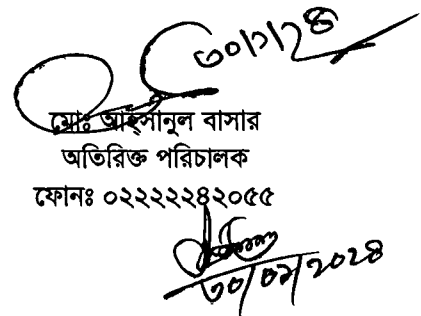 ৩০/১/২৪
মোঃ আহ্সানুল বাসার
অতিরিক্ত পরিচালক
ফোনঃ ০২২২২২৪২০৫৫
৩০/০১/২০২৪